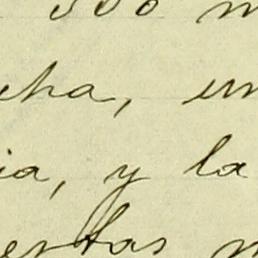 350 m
cha, un
ia, y la
ertas m